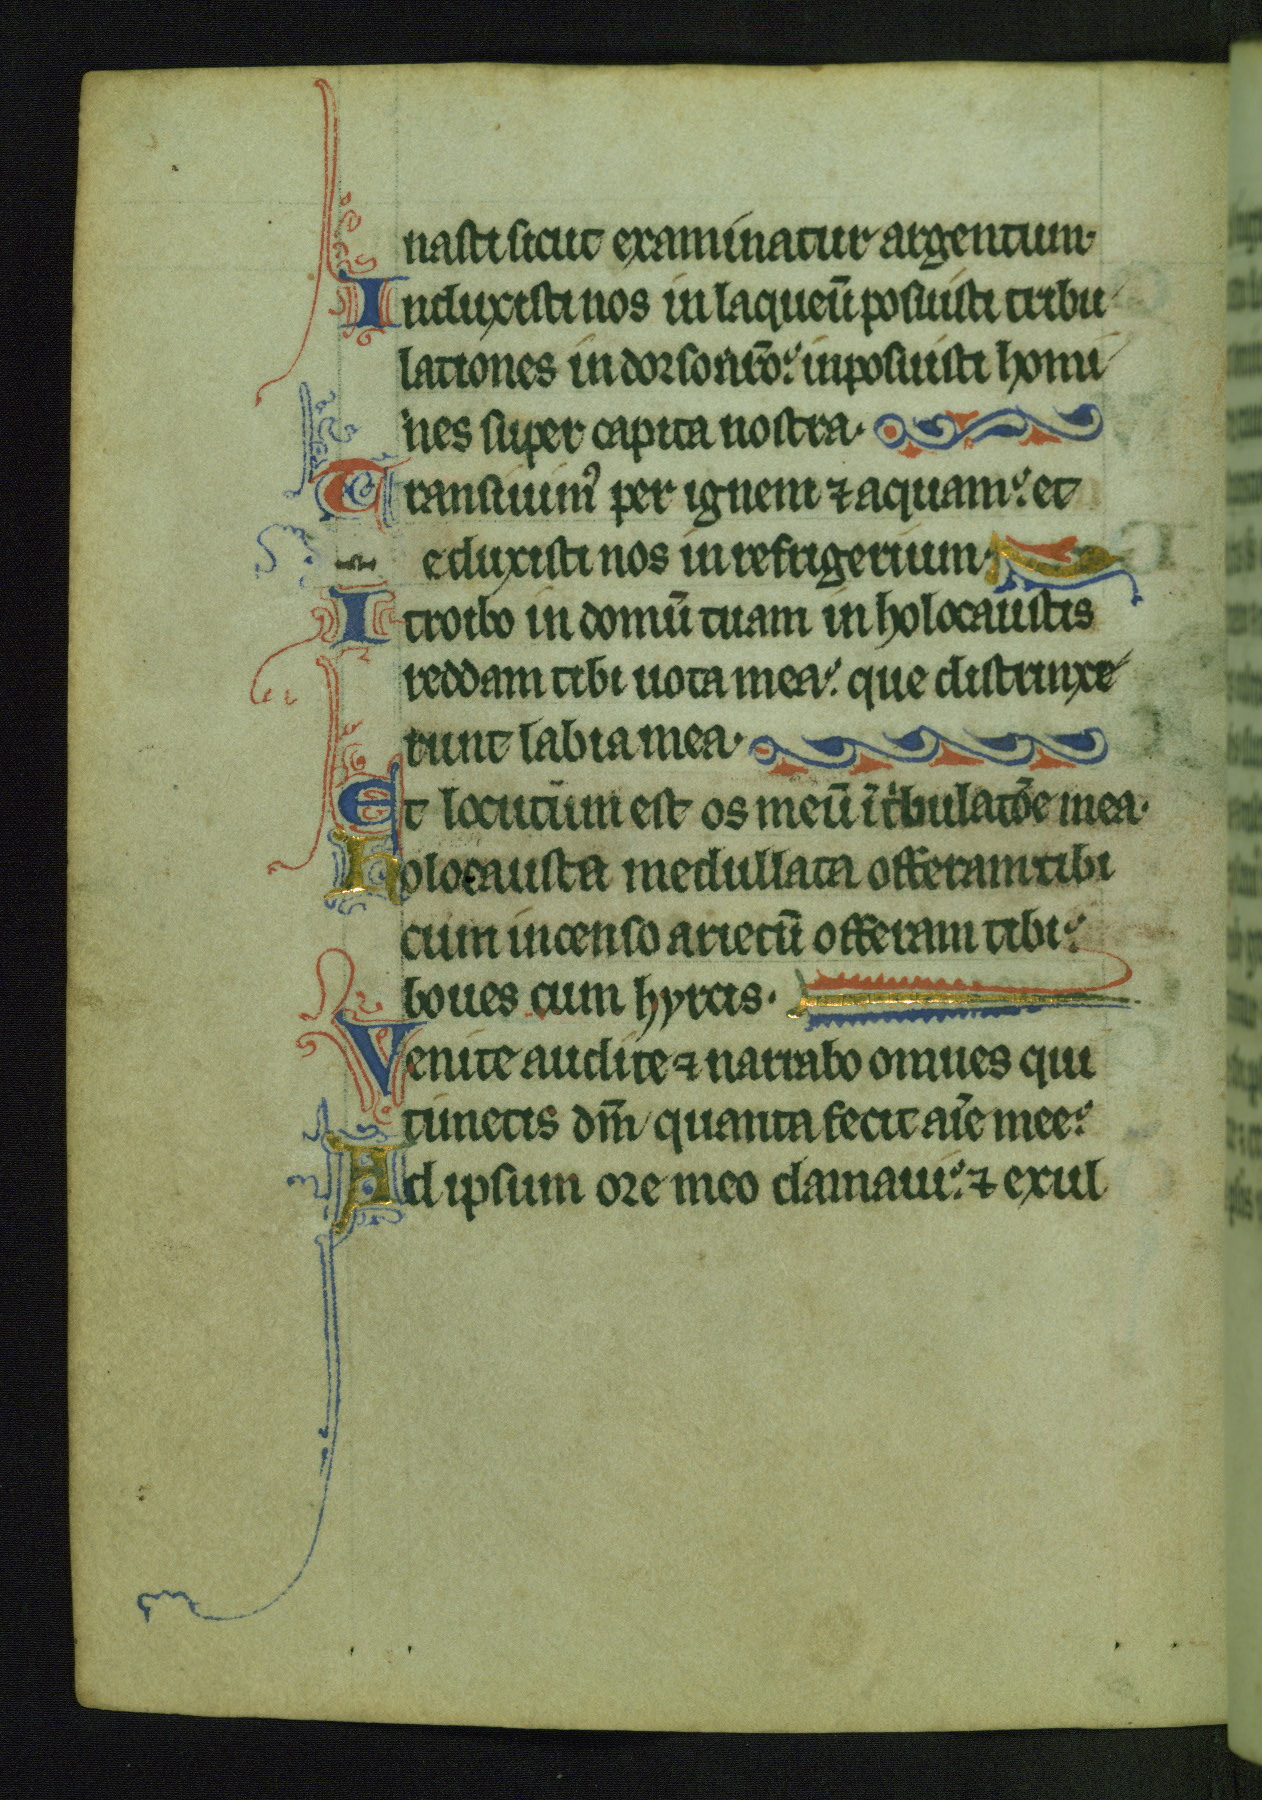 nasti sicut examinatur argentum·
Induxisti nos in laqueū posuisti tribu
lationes in dorso nr̄o: inposuisti homi
nes super capita nostra·
Transiuimꝰ per ignem ⁊ aquam: et
eduxisti nos in refrigerium·
Itroibo in domū tuam in holocaustis
reddam tibi uota mea: que distinxe
runt labia mea·
Et locutum est os meū ī t̓bulatōe mea·
holocausta medullata offeram tibi
cum incenso arietū offeram tibi:
boues cum hyrcis·
Venite audite ⁊ narrabo omnes qui
timetis dm̄ quanta fecit aīe mee:
Ad ipsum ore meo clamaui: ⁊ exul